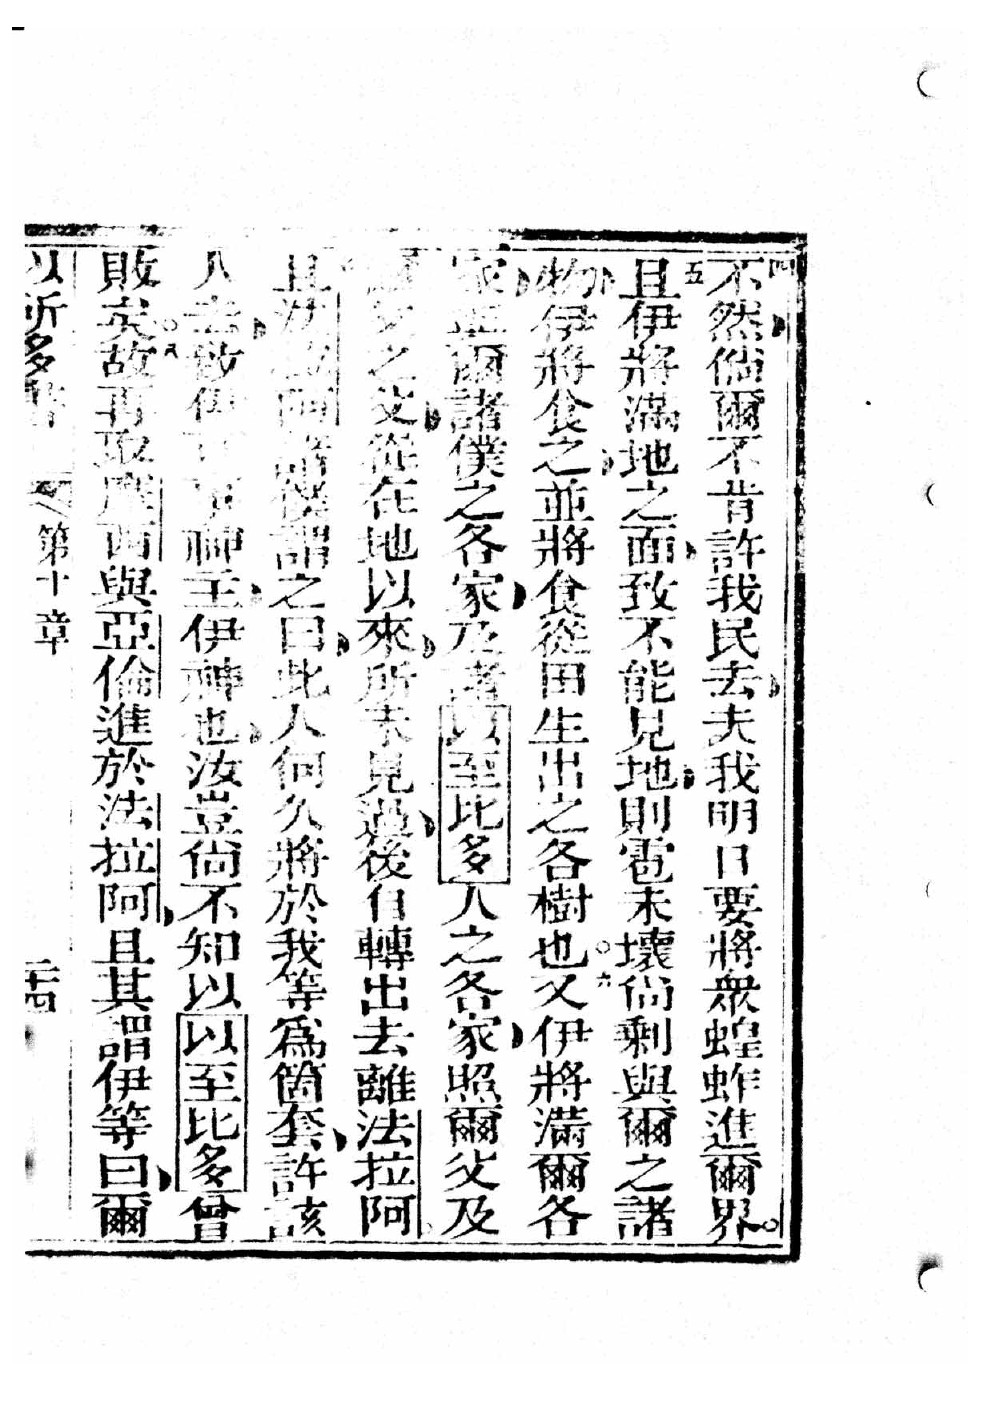 四不然倘爾不肯許我民去夫我明日要將衆蝗蚱進爾界。
五且伊將滿地之面致不能見地則雹未壞尚剩與爾之諸
物伊將食之並將食從田生出之各樹也。六又伊將滿爾各
家並爾諸僕之各家及諸以至比多人之各家照爾父及
父之父從在地以來所未見過後自轉出去離法拉阿
且法拉阿諸僕謂之曰此人何久將於我等爲箇套許該
人去致伊可事神主伊神也汝豈尚不知以以至比多曾
敗矣。八故再取摩西與亞倫進於法拉阿且其謂伊等曰爾
以所多書 第十章 二十四